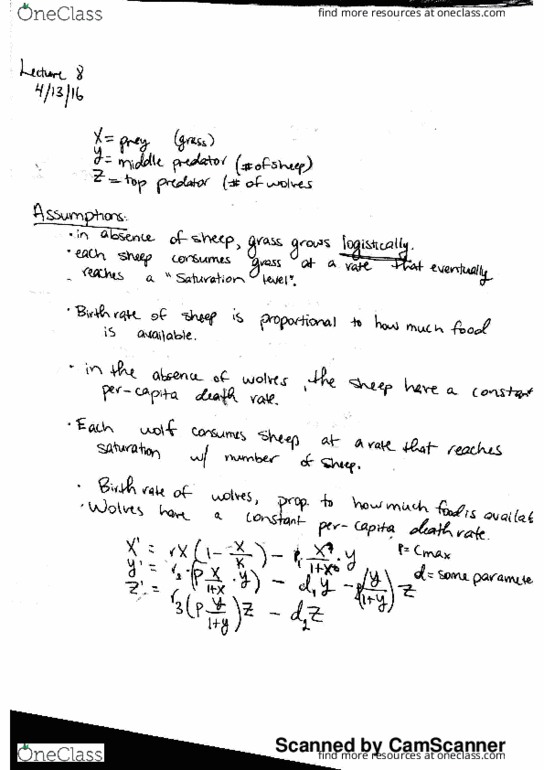 OneClass
find more resources at oneclass.com
Lecture 8
4/13/16
X = prey (grass)
y = middle predator (# of sheep)
Z = top predator (# of wolves
Assumptions:
• in absence of sheep, grass grows logistically.
• each sheep consumes grass at a rate that eventually
reaches a "Saturation level".
• Birth rate of sheep is proportional to how much food
is available.
• in the absence of wolves, the sheep have a constant
per-capita death rate.
• Each wolf consumes sheep at a rate that reaches
saturation w/ number of sheep.
• Birth rate of wolves, prop. to how much food is availab
• Wolves have a constant per-capita death rate.
X' = rX(1 - X/K) - X/1+X · y P = Cmax
y' = r₂(P X/1+X · y) - d₁y - P(y/1+y)Z d = some paramete
Z' = r₃(P y/1+y)Z - d₂Z
Scanned by CamScanner
OneClass
find more resources at oneclass.com